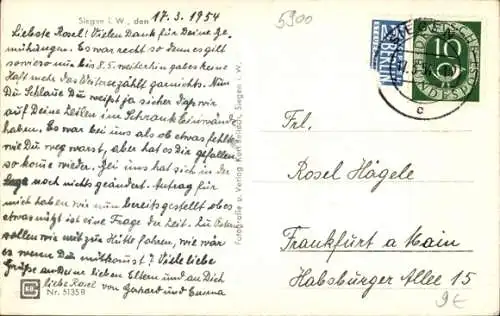 Siegen i. W., den 17.3.1954
Liebste Rosel! Vielen Dank für Deine Be-
mühungen. Es war recht so denn es gilt
sowieso nur bis 8.5. weiterhin gabes keine
Haft mehr das Weitererzählt garnichts. Nun
Du Schlaue Du weißt ja sicher daß wir
auf Deine Zeilen im Schrank Einwände
haben. Es war bei uns als ob etwas fehlte
wie Du weg warst, aber hat es Dir gefallen
so komme wieder. Bei uns hat sich in der
Lage noch nichts geändert. Antrag für
mich haben wir nun bereitsgestellt ob es
etwas nützt ist eine Frage der Zeit. Zu Ostern
sollen wir mit zu Hütte fahren, wie wär
es wenn Du mitkommst? Viele liebe
Grüße an Deine lieben Eltern und an Dich
liebe Rosel von Gerhard und Emma
Nr. 5135 B
Fotografie u. Verlag Siegen i. W.
5900
NOTOPFER
2 BERLIN
SIEGEN
c
DEUTSCHE
BUNDESPOST
10
Frl.
Rosel Hägele
Frankfurt a Main
Habsburger Allee 15
9€